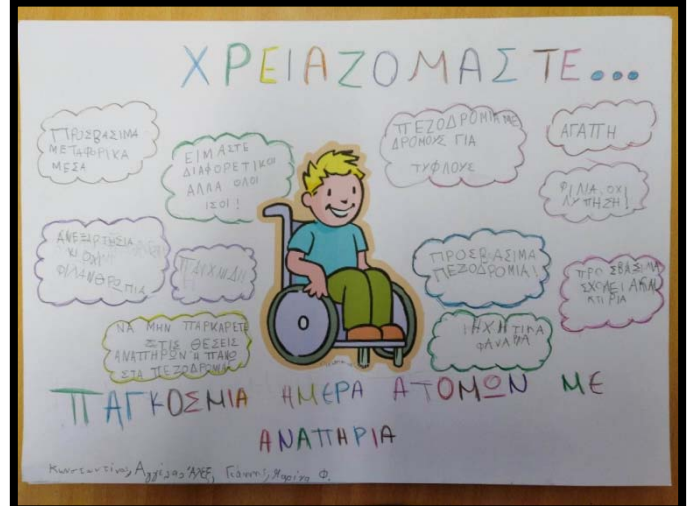 ΧΡΕΙΑΖΟΜΑΣΤΕ...
ΠΡΟΣΒΑΣΙΜΑ
ΜΕΤΑΦΟΡΙΚΑ
ΜΕΣΑ
ΕΙΜΑΣΤΕ
ΔΙΑΦΟΡΕΤΙΚΟΙ
ΑΛΛΑ ΟΛΟΙ
ΙΣΟΙ!
ΠΕΖΟΔΡΟΜΙΑ ΜΕ
ΔΡΟΜΟΥΣ ΓΙΑ
ΤΥΦΛΟΥΣ
ΑΓΑΠΗ
ΦΙΛΙΑ, ΟΧΙ
ΛΥΠΗΣΗ!
ΑΝΕΞΑΡΤΗΣΙΑ
ΚΙ ΟΧΙ
ΦΙΛΑΝΘΡΩΠΙΑ
ΠΡΟΣΒΑΣΙΜΑ
ΠΕΖΟΔΡΟΜΙΑ!
ΠΡΟΣΒΑΣΙΜΑ
ΣΧΟΛΕΙΑ ΚΑΙ
ΚΤΙΡΙΑ
ΝΑ ΜΗΝ ΠΑΡΚΑΡΕΤΕ
ΣΤΙΣ ΘΕΣΕΙΣ
ΑΝΑΠΗΡΩΝ Η ΠΑΝΩ
ΣΤΑ ΠΕΖΟΔΡΟΜΙΑ
ΗΧΗΤΙΚΑ
ΦΑΝΑΡΙΑ
ΠΑΓΚΟΣΜΙΑ ΗΜΕΡΑ ΑΤΟΜΩΝ ΜΕ
ΑΝΑΠΗΡΙΑ
Κωνσταντίνος, Αγγελος, Γιάννης, Μαρίνα Φ.